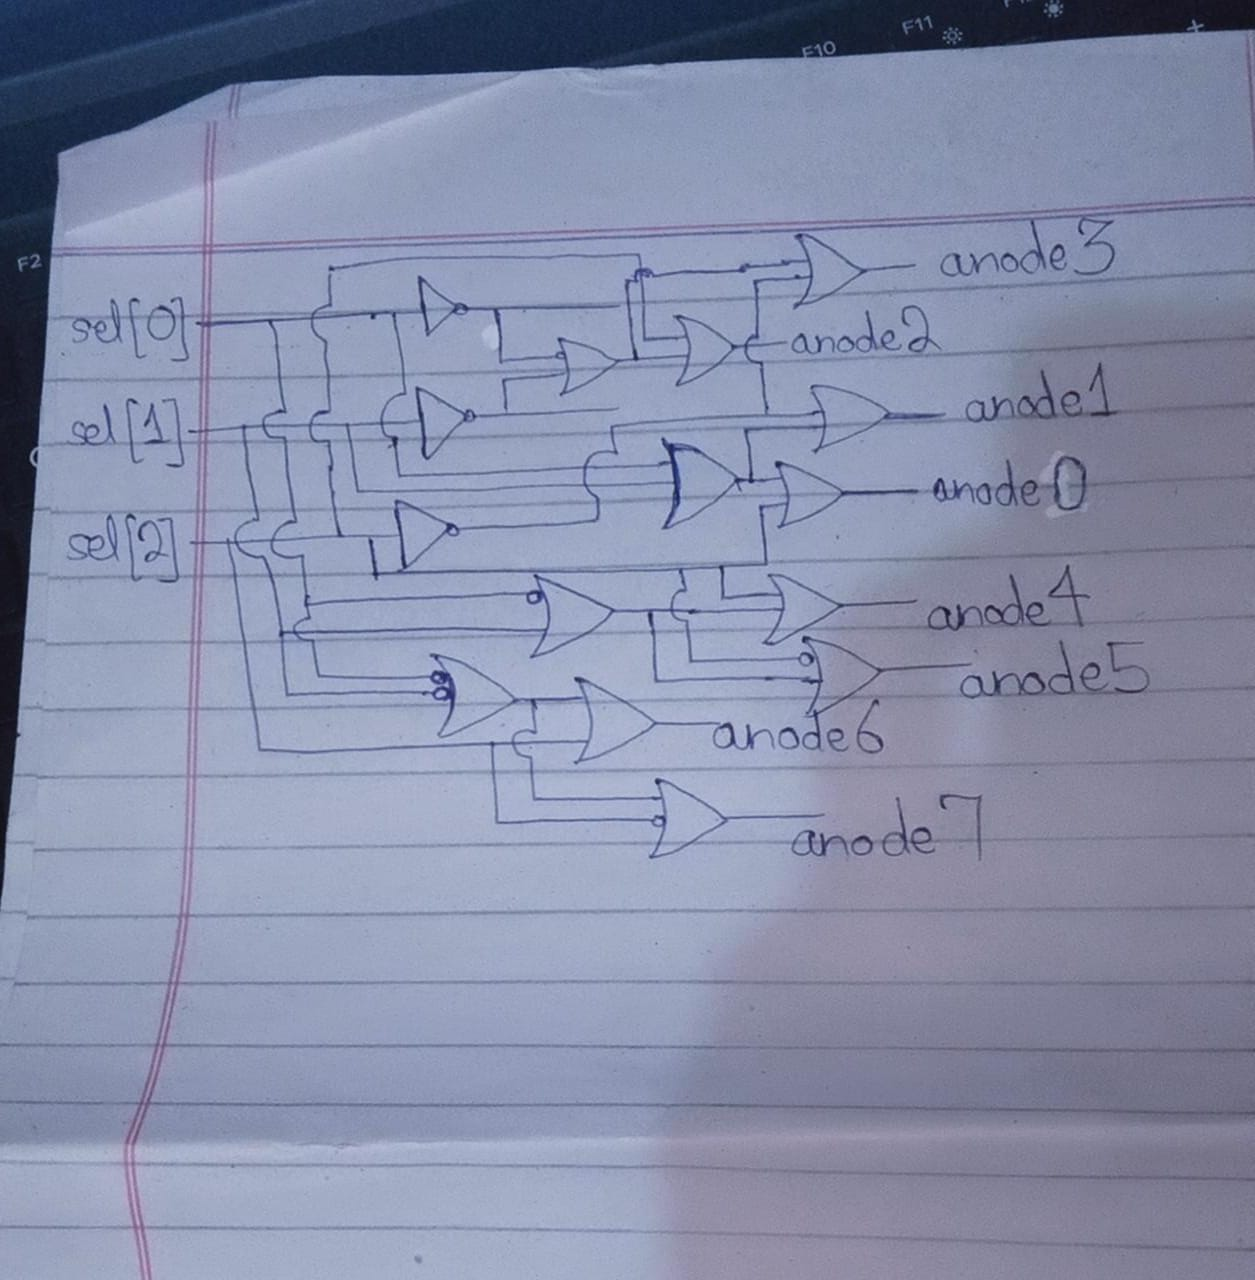 F10
F11
F2
sel[0]
sel[1]
sel[2]
anode3
anode2
anode1
anode0
anode4
anode5
anode6
anode7